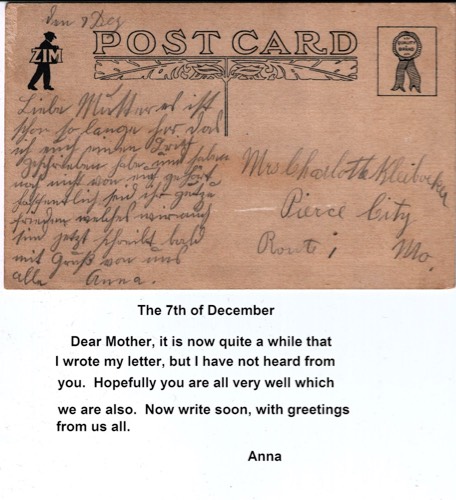 den 7 Dez
ZIM
POST CARD
Liebe Mutter es ist
schon so lange her das
ich euch einen Brief
geschrieben habe und haben
noch nicht von euch gehört
hoffentlich seid ihr
welches wir auch
sind jetzt schreibt bald
mit Gruß von uns
alle Anna.
Mrs Charlotte Kleibocker
Pierce City
Route 1 Mo.
The 7th of December
Dear Mother, it is now quite a while that
I wrote my letter, but I have not heard from
you. Hopefully you are all very well which
we are also. Now write soon, with greetings
from us all.
Anna